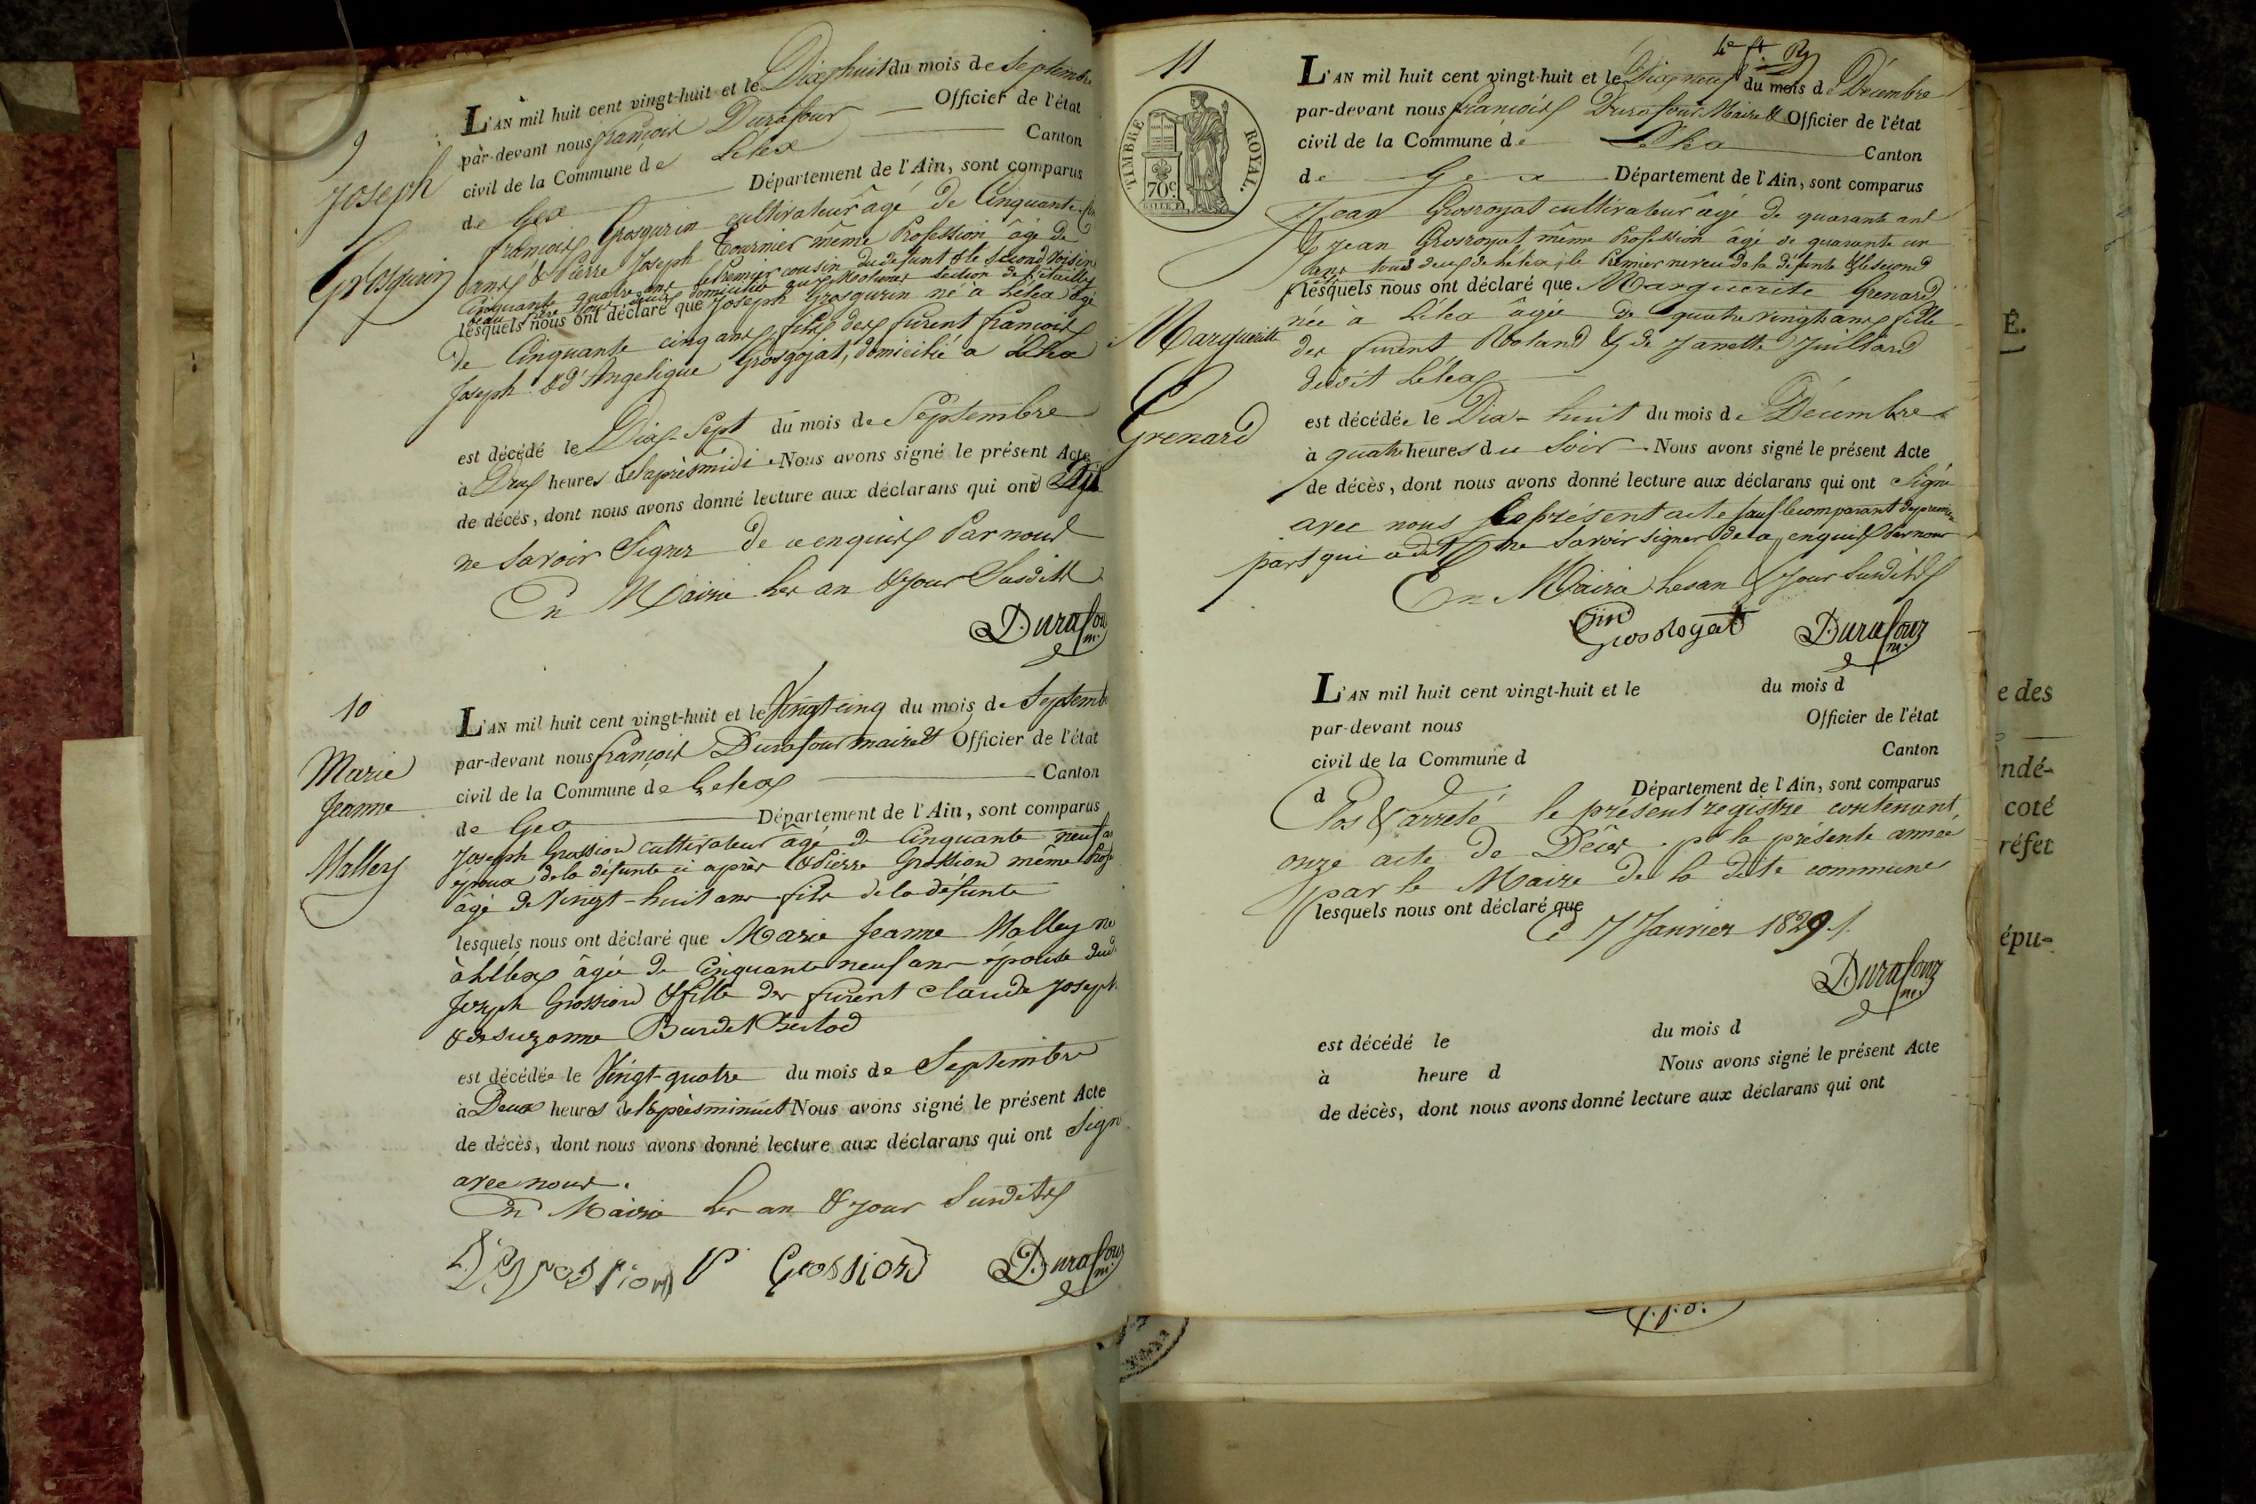 9
Joseph
Grosgurin
L'AN mil huit cent vingt-huit et le Dix huit du mois de Septembre
par-devant nous françois Durafour Officier de l'état
civil de la Commune de Lélex Canton
de Gex Département de l'Ain, sont comparus
françois Grosgurin cultivateur âgé de Cinquante
ans & Pierre Joseph Tournier même Profession âgé de
Cinquante quatre ans le Premier cousin du défunt & le second voisin
domicilié section de
lesquels nous ont déclaré que Joseph Grosgurin né à Lélex âgé
de Cinquante cinq ans, fils des furent françois
Joseph & d'Angelique Grosgojat, domicilié à Lélex
est décédé le Dix-Sept du mois de Septembre
à Deux heures de l'après midi Nous avons signé le présent Acte
de décès, dont nous avons donné lecture aux déclarans qui ont
ne savoir Signer de ce enquis Par nous
En Mairie les an & jour Susdits
Durafour
m.
10
Marie
Jeanne
Malley
L'AN mil huit cent vingt-huit et le Vingt cinq du mois de Septemb
par-devant nous françois Durafour maire & Officier de l'état
civil de la Commune de Lelex Canton
de Gex Département de l'Ain, sont comparus
Joseph Grossiord cultivateur âgé de Cinquante neuf
époux de la défunte ci après & Pierre Grossiord même Prof
âgé de Vingt-huit ans fils de la défunte
lesquels nous ont déclaré que Marie Jeanne Malley
à Lélex âgée de Cinquante neuf ans épouse dud
Joseph Grossiord & fille des furent Claude Joseph
& de Suzanne Burdet
est décédée le Vingt-quatre du mois de Septembre
à Deux heures de l'après minuit Nous avons signé le présent Acte
de décès, dont nous avons donné lecture aux déclarans qui ont Sign
avec nous.
En Mairie les an & jour Susdits
Grossiord P Grossiord Durafour
m.
11
TIMBRE ROYAL.
70c.
Marguerite
Grenard
L'AN mil huit cent vingt-huit et le Dix neuf du mois de Décembre
par-devant nous françois Durafour Maire & Officier de l'état
civil de la Commune de Lélex Canton
de Gex Département de l'Ain, sont comparus
Jean Grosroyat cultivateur âgé de quarante ans
& Jean Grosroyat même Profession âgé de quarante un
ans tous deux de Lélex, le Premier neveu de la défunte & le second
lesquels nous ont déclaré que Marguerite Grenard
née à Lélex âgée de quatre vingt ans fille
des furent Roland & de Janette Juillard
dudit Lélex
est décédée le Dix-huit du mois de Décembre
à quatre heures du Soir Nous avons signé le présent Acte
de décès, dont nous avons donné lecture aux déclarans qui ont Signé
avec nous le présent acte sauf le comparant de première
part qui a dit ne savoir signer de ce enquis Par nous
En Mairie les an & jour Susdits
Grosroyat Durafour
m.
L'AN mil huit cent vingt-huit et le du mois d
par-devant nous Officier de l'état
civil de la Commune d Canton
d Département de l'Ain, sont comparus
Clos & arreté le présent registre contenant
onze acte de Décès pr la présente année
par le Maire de la dite commune
lesquels nous ont déclaré que
Ce 17 Janvier 1829
Durafour
m.
est décédé le du mois d
à heure d Nous avons signé le présent Acte
de décès, dont nous avons donné lecture aux déclarans qui ont
É.
e des
ndé-
coté
réfet
épu-